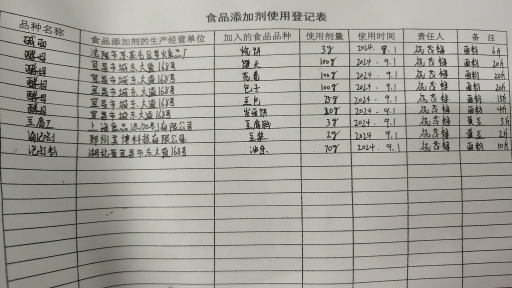 食品添加剂使用登记表
品种名称 食品添加剂的生产经营单位 加入的食品品种 使用剂量 使用时间 责任人 备 注
烧饼 3g 2024. 9.1 面粉 6斤
酵母 宜昌市城东大道168号 馒头 100g 2024. 9.1 面粉 20斤
酵母 宜昌市城东大道168号 花卷 100g 2024. 9.1 面粉 20斤
酵母 宜昌市城东大道168号 包子 100g 2024. 9.1 面粉 20斤
酵母 宜昌市城东大道168号 豆包 75g 2024. 9.1 面粉 15斤
酵母 宜昌市城东大道168号 发面饼 20g 2024. 9.1 面粉 4斤
上海食品添加剂有限公司 豆腐脑 3g 2024. 9.1 黄豆 3斤
科技有限公司 豆浆 2g 2024 9.1 黄豆 2斤
湖北省宜昌市东大道168号 油条 70g 2024. 9.1 面粉 10斤